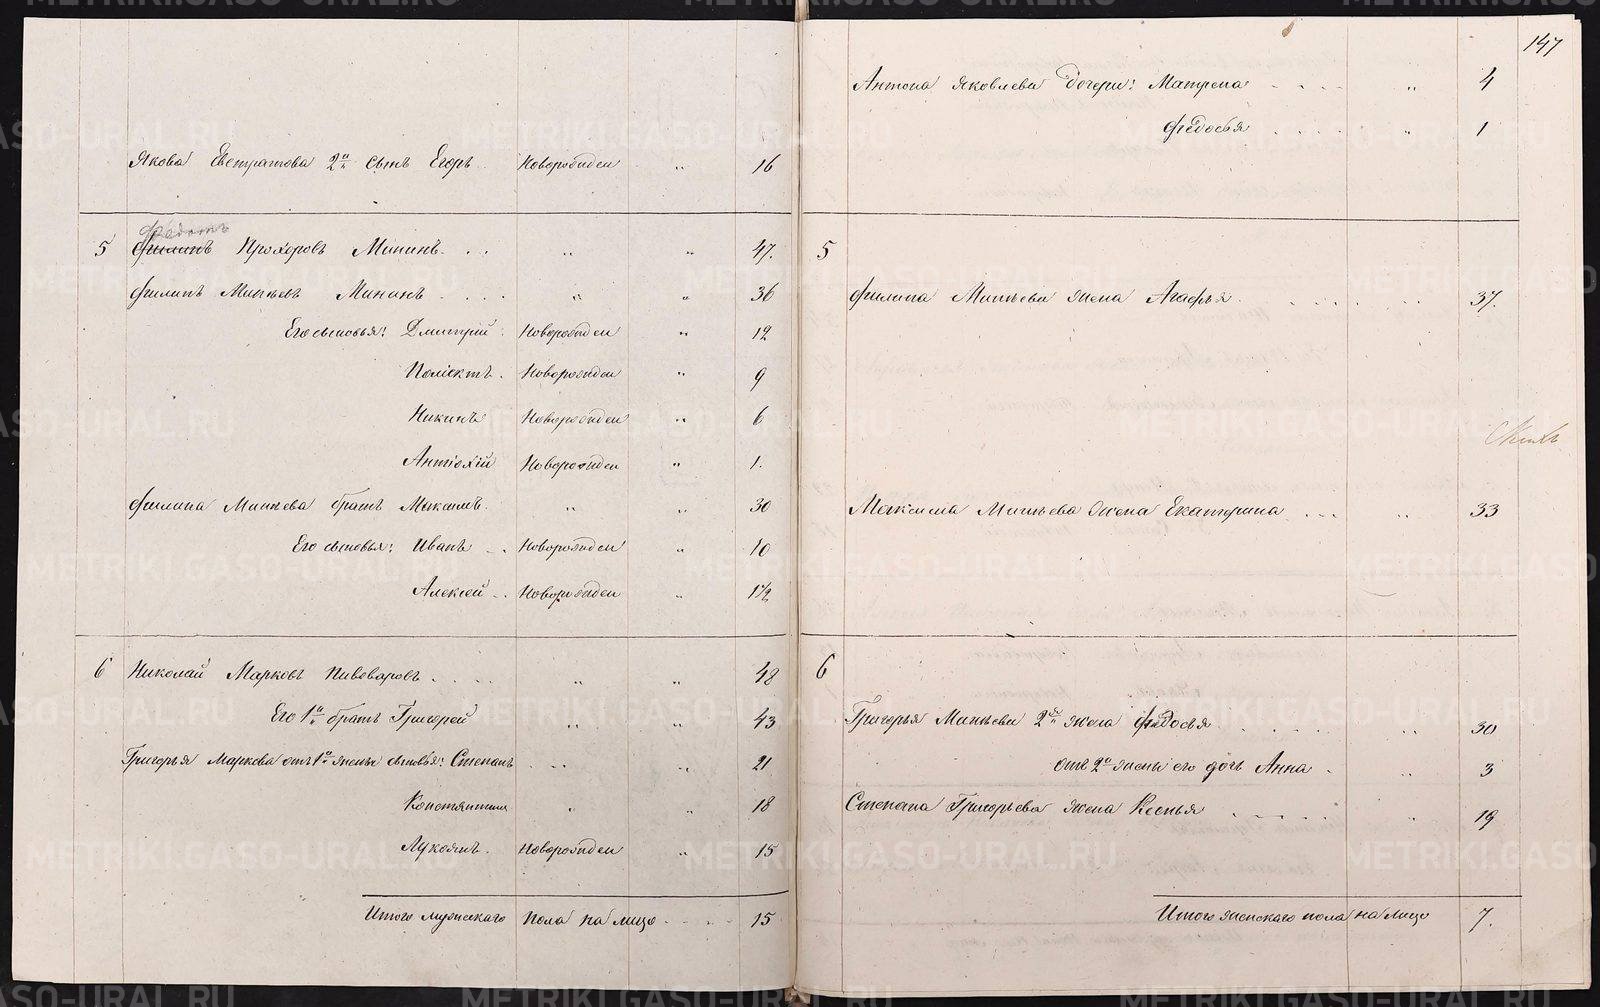 147
Якова Евстратова 2й сынъ Егоръ Новорожден " 16
Федотъ
5 Филипъ Прохоровъ Мининъ . . . " " 47.
Филипъ Минѣевъ Мининъ . . . . " " 36
Его сыновья: Дмитрій Новорожден " 12
Поліектъ . Новорожден " 9
Никинъ Новорожден " 6
Антіохій Новорожден " 1.
Филипа Минѣева братъ Максимъ. " " 30
Его сыновья: Иванъ Новорожден " 10
Алексѣй Новорожден " 1½
6 Николай Марковъ Пивоваровъ . . . . " " 48
Его 1й братъ Григорей " " 43
Григорья Маркова отъ 1й жены сыновья: Степанъ " " 21
Констянтин " " 18
Лукоянъ. Новорожден " 15
Итого мужескаго пола на лицо 15
Антона Яковлева дочери: Матрена . . . . " 4
Федосья " 1
5
Филипа Минѣева жена Агафья " 37.
Максима Минѣева жена Екатерина . . . " 33
6
Григорья Минѣева 2я жена Федосья 30
отъ 2й жены его дочь Анна . " 3
Степана Григорьева жена Ксенья " 19
Итого женскаго пола на лицо 7.
METRIKI.GASO-URAL.RU